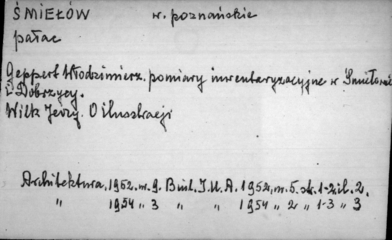 ŚMIEŁÓW w. poznańskie
pałac
Geppert Włodzimierz. pomiary inwentaryzacyjne w Śmiełowie
i Dobrzycy.
Wilk Jerzy. O ilustracji
Architektura. 1952. n. 9. Biul. I.U.A. 1952, n. 5. str. 1-2 il. 2.
" 1954 " 3 " " 1954 " 2 " 1-3 " 3